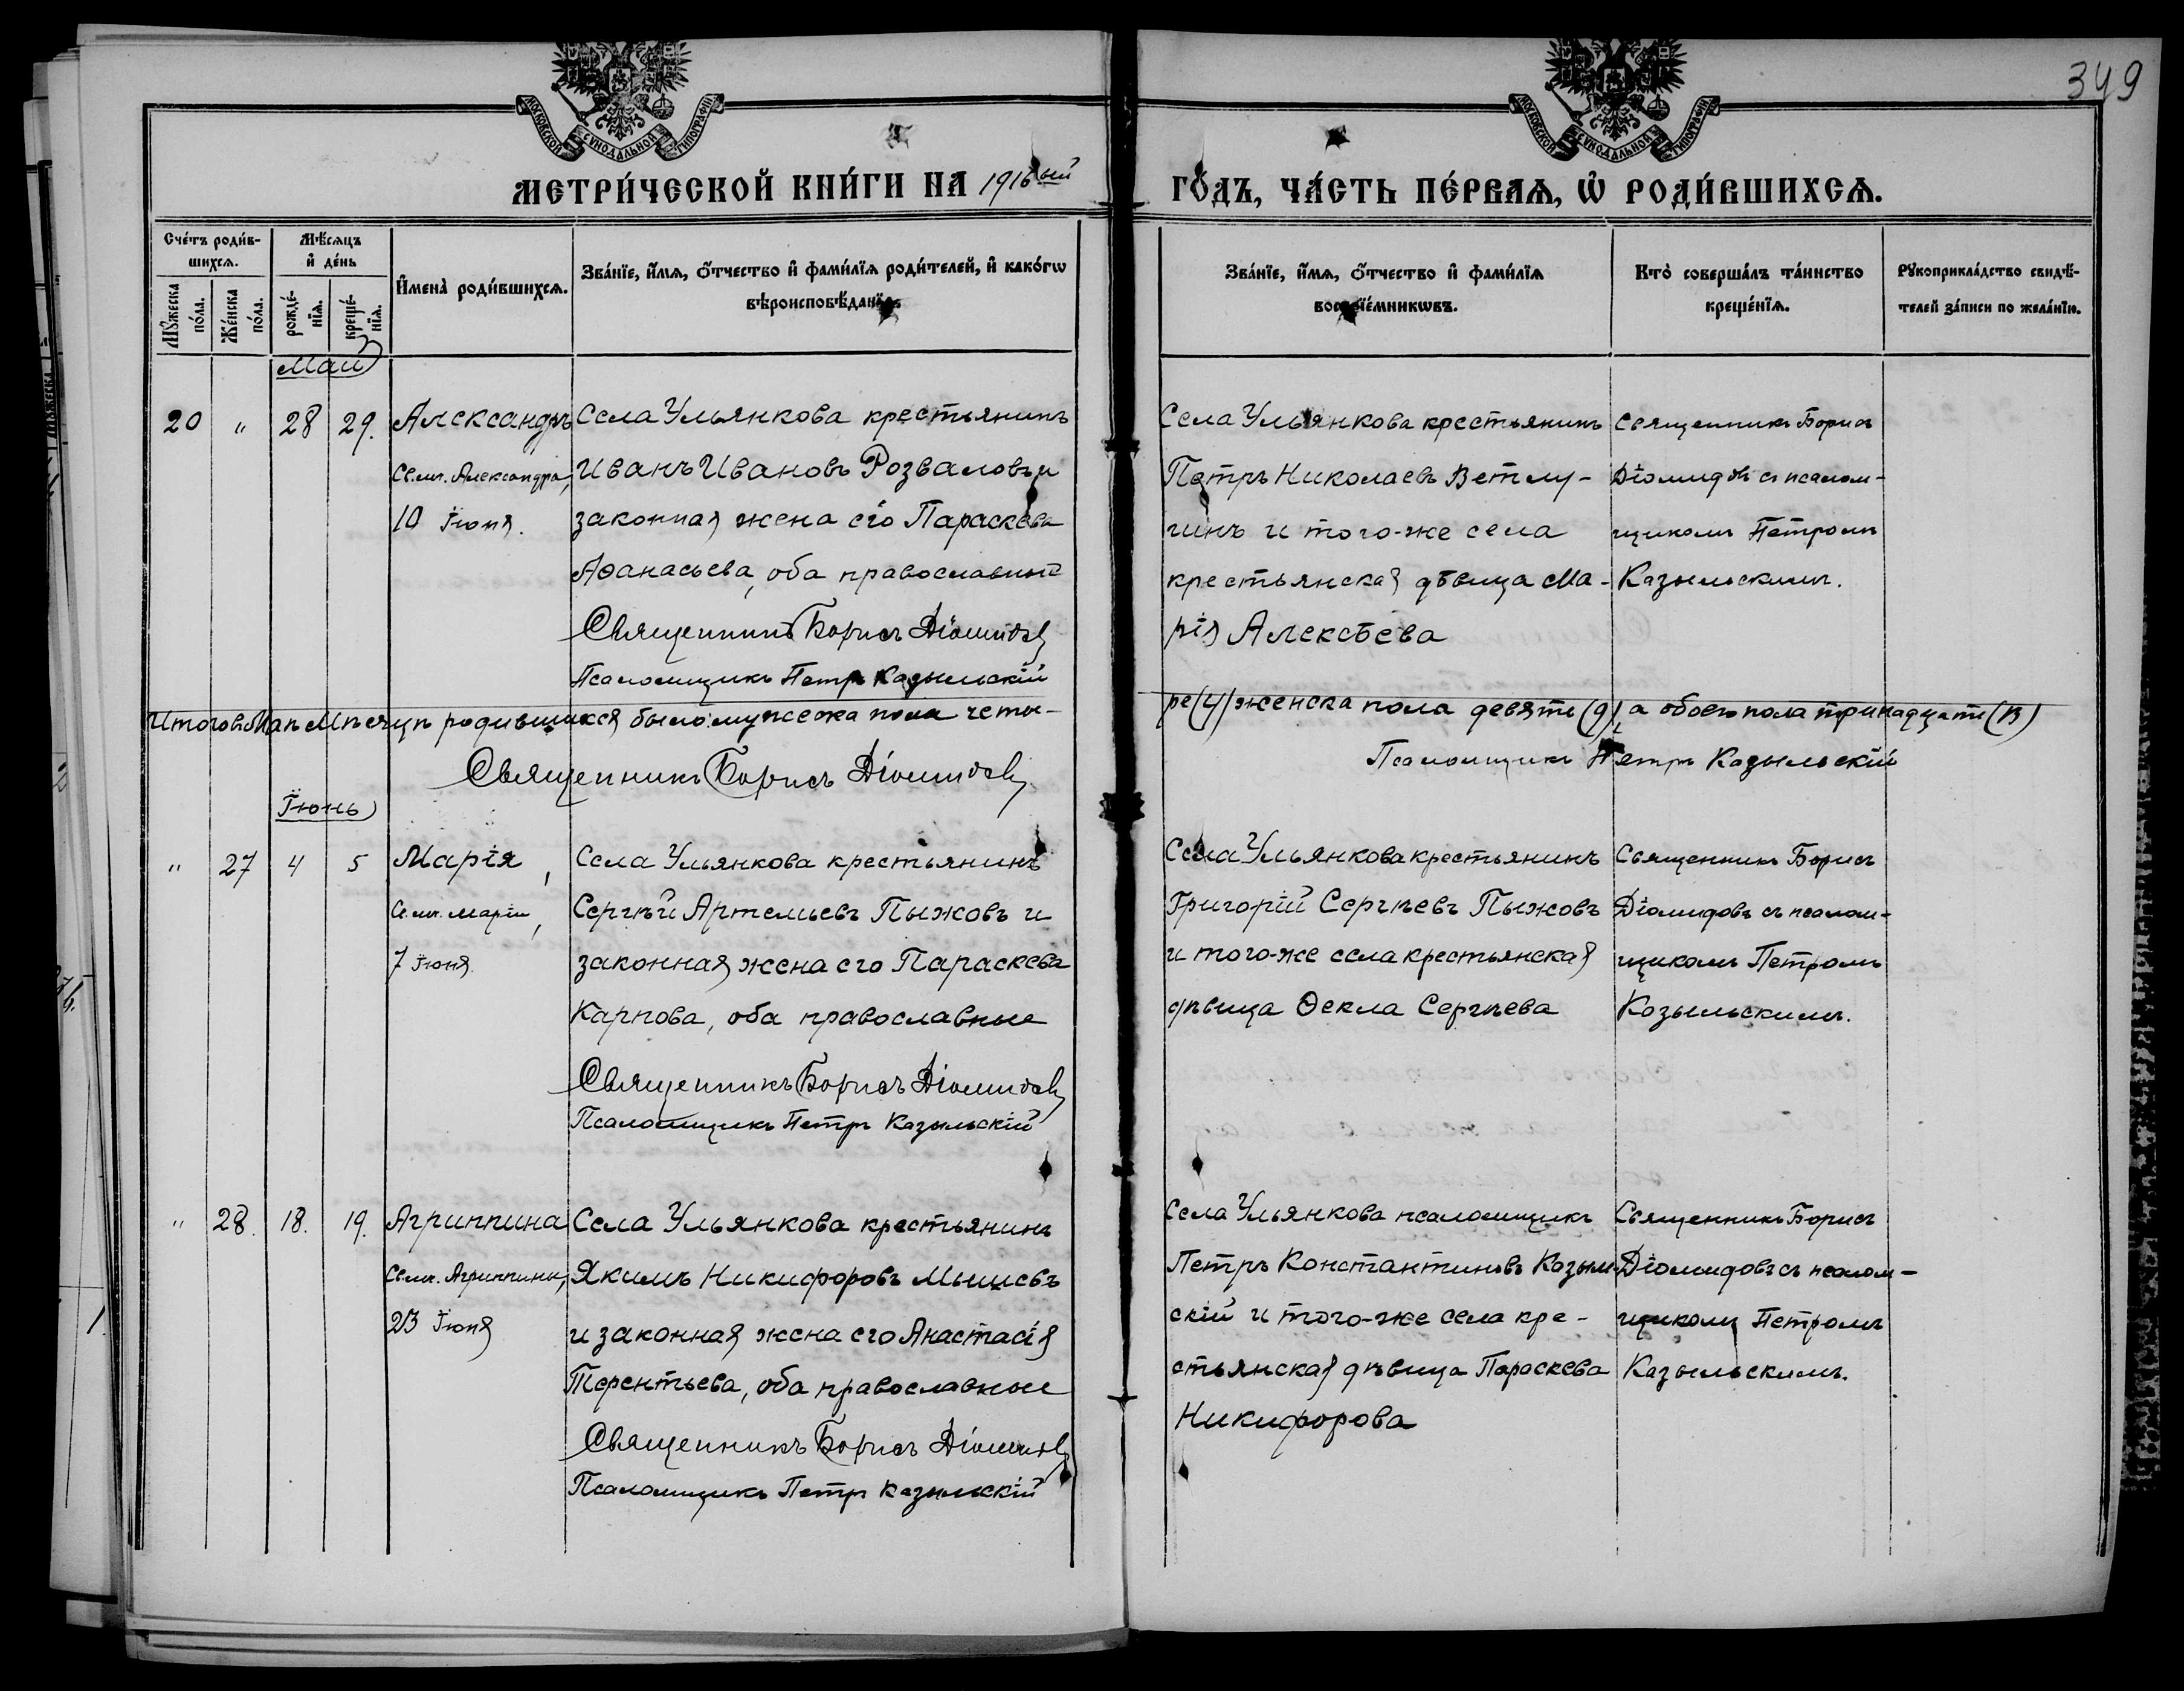 349
МОСКОВСКОЙ СУНОДАЛЬНОЙ ТИПОГРАФІИ
МОСКОВСКОЙ СУНОДАЛЬНОЙ ТИПОГРАФІИ
МЕТРИ́ЧЕСКОЙ КНИ́ГИ НА 1916ый ГО́ДЪ, ЧА́СТЬ ПЕ́РВАѦ, Ѡ҆ РОДИ́ВШИХСѦ.
Сче́тъ роди́в-
шихсѧ.
Мꙋ́жеска по́ла.
Же́нска по́ла.
Мѣ́сѧцъ
и҆ де́нь
рожде́-
нїѧ.
креще́-
нїѧ.
И҆мена̀ роди́вшихсѧ.
Зва́нїе, и҆́мѧ, ѻ҆́тчество и҆ фами́лїѧ роди́телей, и҆ како́гѡ
вѣроисповѣ́данїѧ.
Зва́нїе, и҆́мѧ, ѻ҆́тчество и҆ фами́лїѧ
воспрїе́мникѡвъ.
Кто̀ соверша́лъ та́инство
креще́нїѧ.
Рꙋкоприкла́дство свидѣ́-
телей за́писи по жела́нїю.
Май
20 " 28 29.
Александръ
Св. мч. Александра,
10 Іюня.
Села Ульянкова крестьянинъ
Иванъ Ивановъ Розваловъ и
законная жена его Параскева
Аѳанасьева, оба православные
Священникъ Борисъ Діомидовъ
Псаломщикъ Петръ Казыльскій
Села Ульянкова крестьянинъ
Петръ Николаевъ Ветлу-
гинъ и того-же села
крестьянская дѣвица Ма-
рія Алексѣева
Священникъ Борисъ
Діомидовъ съ псалом-
щикомъ Петромъ
Казыльскимъ.
Итого въ Маѣ мѣсяцѣ родившихся было: мужеска пола четы-
ре (4) женска пола девять (9), а обоего пола тринадцать (13)
Священникъ Борисъ Діомидовъ
Псаломщикъ Петръ Казыльскій
Іюнь
" 27 4 5
Марія,
Св. мч. Маріи,
7 Іюня.
Села Ульянкова крестьянинъ
Сергѣй Артемьевъ Пыжовъ и
законная жена его Параскева
Карпова, оба православные
Священникъ Борисъ Діомидовъ
Псаломщикъ Петръ Казыльскій
Села Ульянкова крестьянинъ
Григорій Сергѣевъ Пыжовъ
и того-же села крестьянская
дѣвица Ѳекла Сергѣева
Священникъ Борисъ
Діомидовъ съ псалом-
щикомъ Петромъ
Казыльскимъ.
" 28. 18. 19.
Агриппина
Св. мч. Агриппины,
23 Іюня
Села Ульянкова крестьянинъ
Якимъ Никифоровъ Мышевъ
и законная жена его Анастасія
Терентьева, оба православные
Священникъ Борисъ Діомидовъ
Псаломщикъ Петръ Казыльскій
Села Ульянкова псаломщикъ
Петръ Константиновъ Казыль-
скій и того-же села кре-
стьянская дѣвица Параскева
Никифорова
Священникъ Борисъ
Діомидовъ съ псалом-
щикомъ Петромъ
Казыльскимъ.